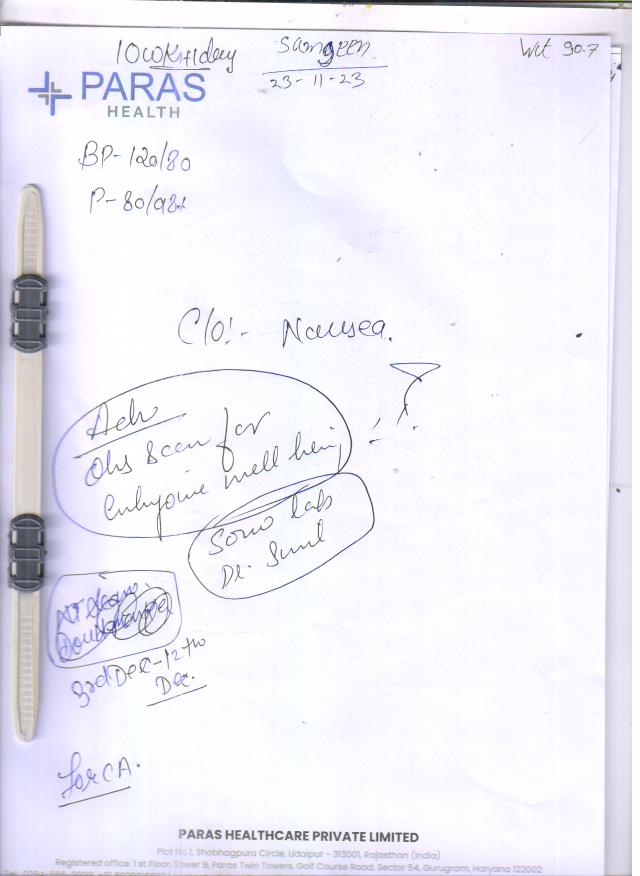 10wk+1day
Sangeen
23-11-23
Wt 90.7
PARAS
HEALTH
BP-120/80
P-80/98%
C/O:- Nausea.
Adv
Obs Scan for
embryonic well being
Sono labs
Dr. Sunil
NT Scan
Double
3rd Dec-12th
Dec.
for CA.
PARAS HEALTHCARE PRIVATE LIMITED
Plot No.1, Shobhagpura Circle, Udaipur - 313001, Rajasthan (India)
Registered office: 1st Floor, Tower B, Paras Twin Towers, Golf Course Road, Sector 54, Gurugram, Haryana 122002